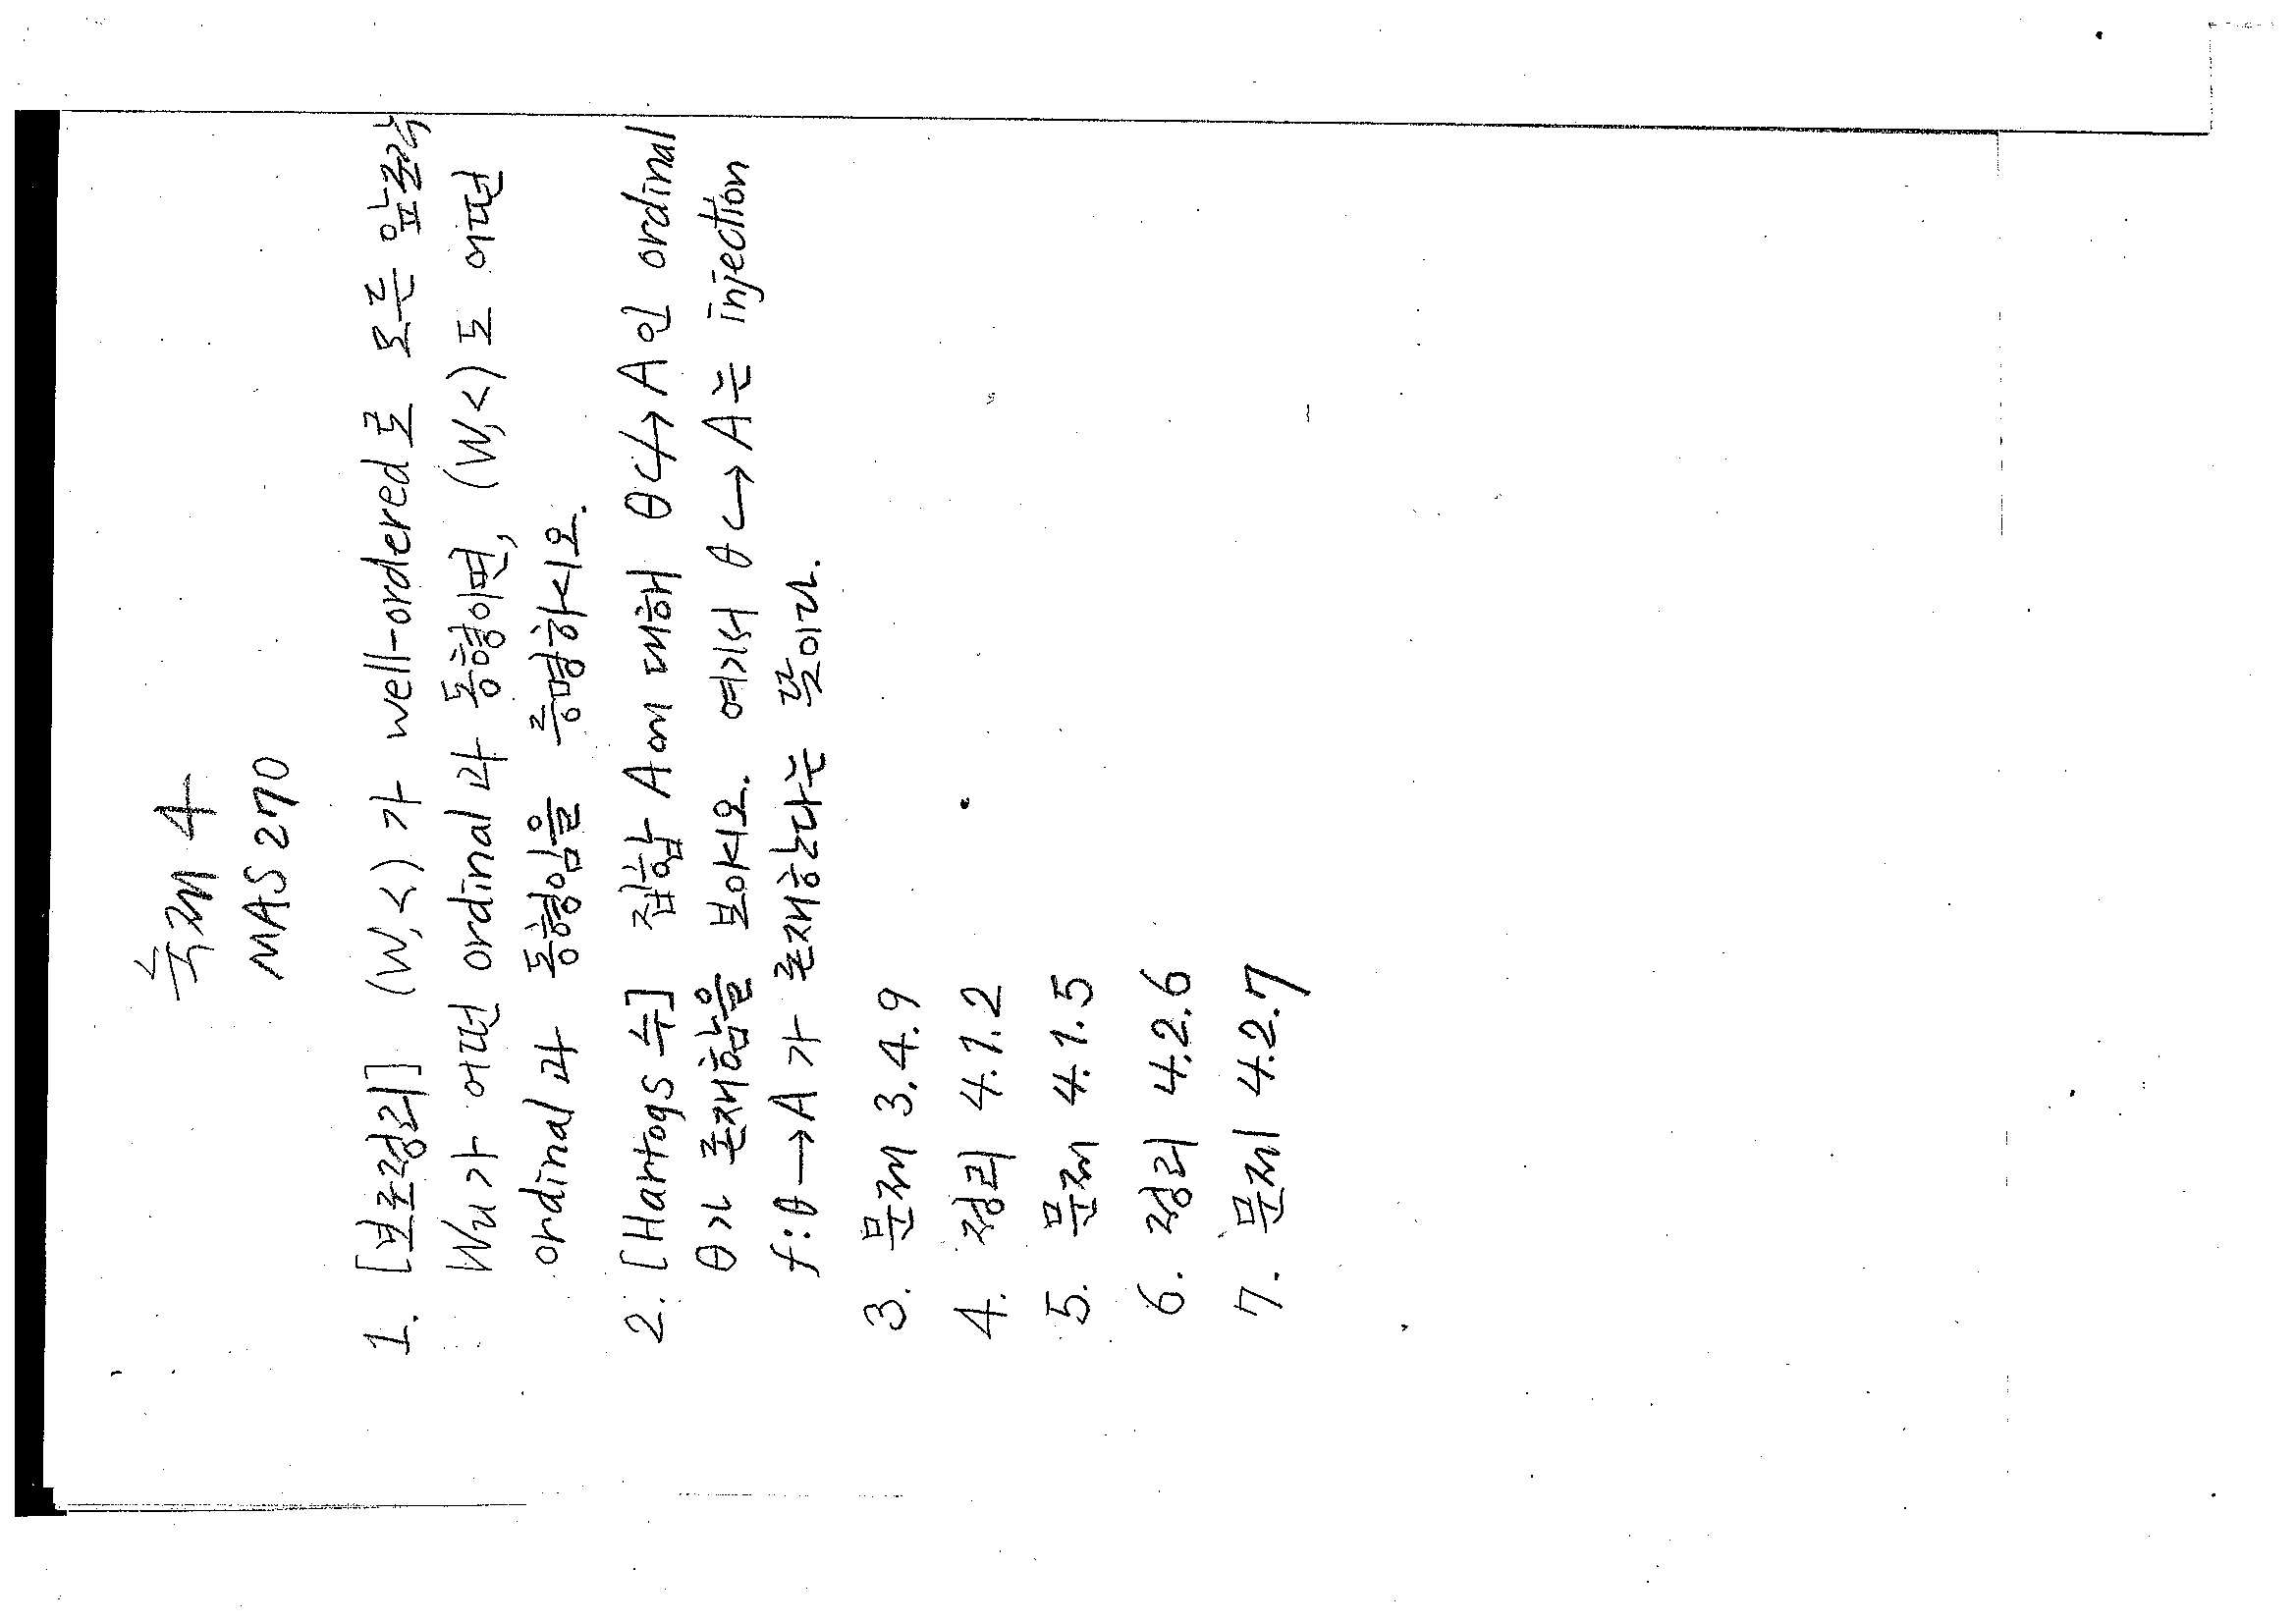 숙제 4
MAS 270
1. [보조정리] (W, <)가 well-ordered로 모든 앞조각
Wu가 어떤 ordinal과 동형이면, (W,<)도 어떤
ordinal과 동형임을 증명하시오.
2. [Hartogs 수] 집합 A에 대해 θ↪̸A인 ordinal
θ가 존재함을 보이시오. 여기서 θ↪A는 injection
f:θ→A가 존재한다는 뜻이다.
3. 문제 3.4.9
4. 정리 4.1.2
5. 문제 4.1.5
6. 정리 4.2.6
7. 문제 4.2.7